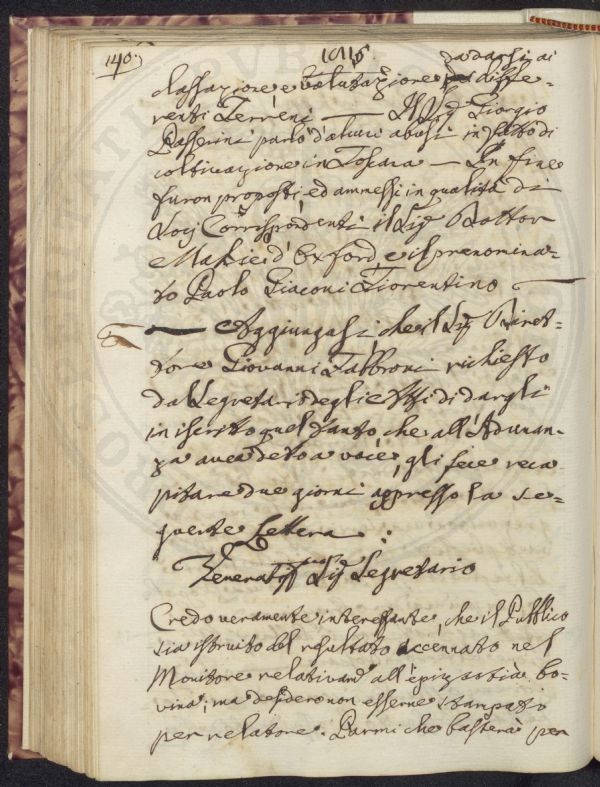 140.
da darsi ai
classazione e valutazione diffe-
renti Terreni — Il Sig.r Giorgio
Passerini parlò d'alcuni abusi in fatto di
coltivazione in Toscana — In fine
furon proposti ed ammessi in qualità di
Socj Corrispondenti il Sig.r Dottor
d'Oxford, e il prenomina-
to Paolo Giaconi Fiorentino
— Aggiungasi che il Sig.r Diret-
tore Giovanni Fabbroni richiesto
dal Segretario degli Atti di dargli
in iscritto quel tanto, che all'Adunan-
za avea detto a voce, gli fece reca-
pitare due giorni appresso la se-
guente Lettera:
Sig.r Segretario
Credo veramente interessante, che il Pubblico
sia istruito del resultato accennato nel
Monitore relativam.e all'epizootia bo-
vina; ma desidero non esserne stampato
per relatore. Parmi che basterà per